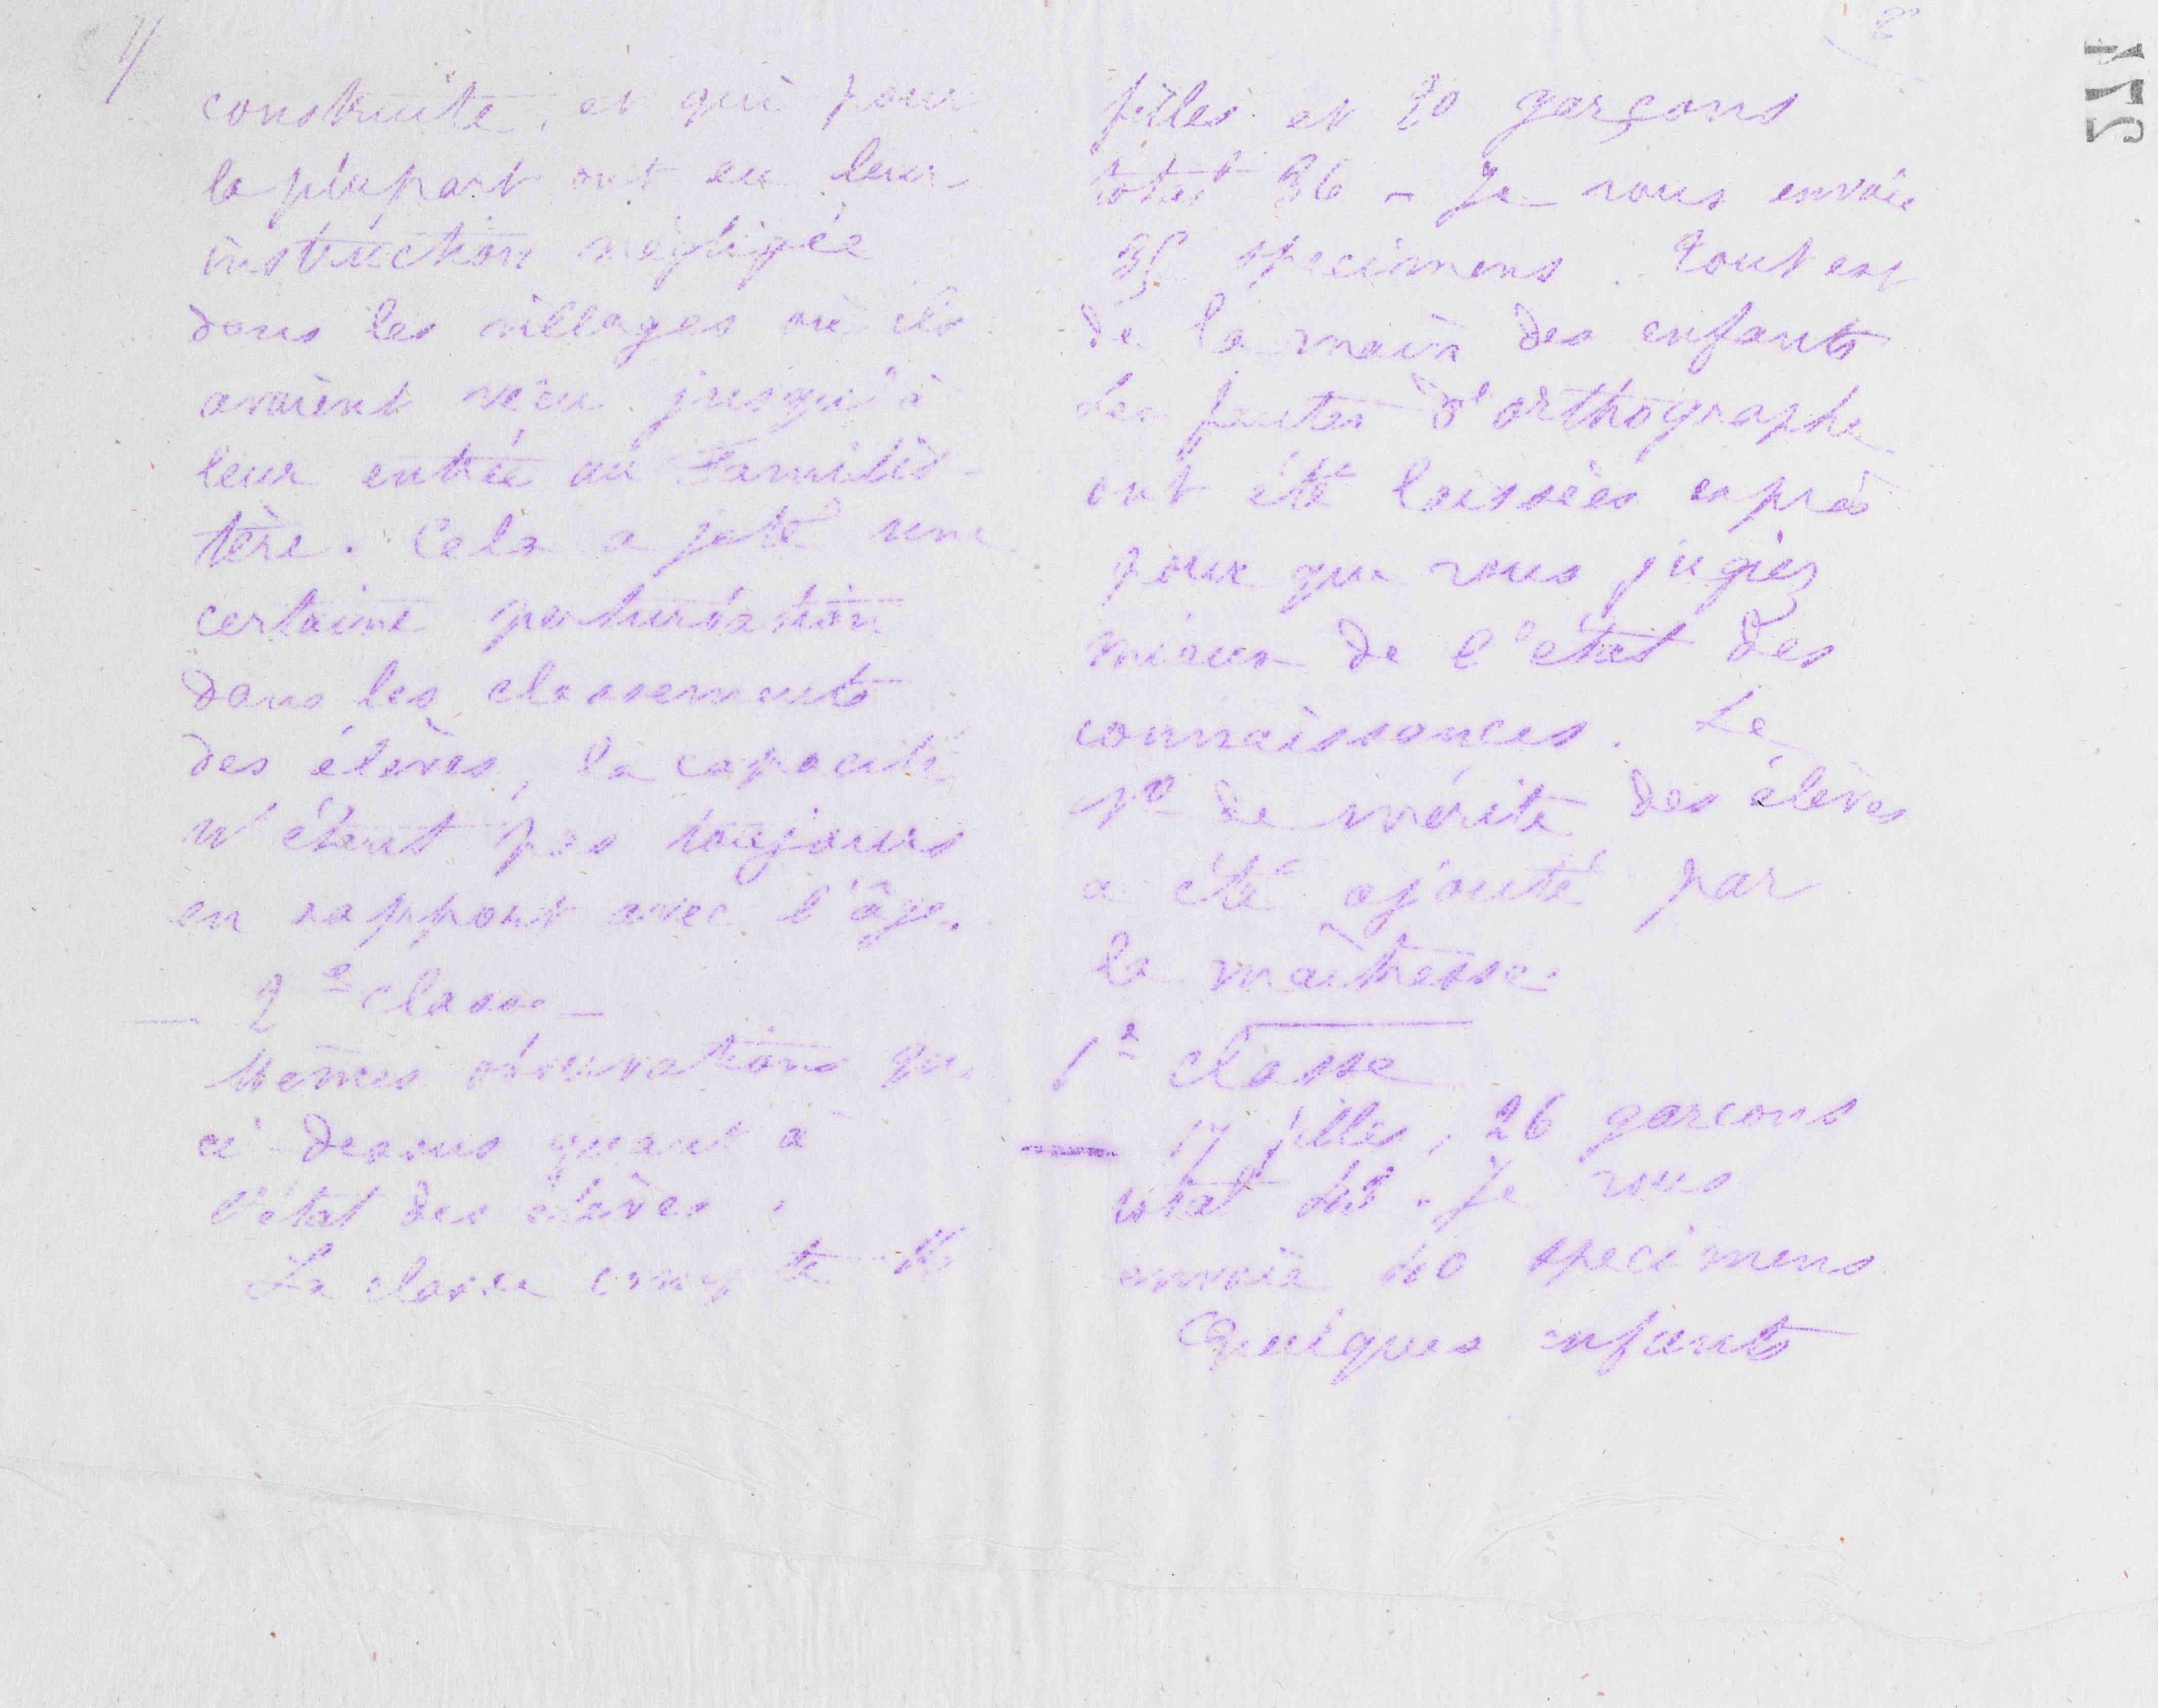 7/
construite, et qui pour
la plupart ont eu leur
instruction négligée
dans les villages où ils
avaient vécu jusqu'à
leur entrée au Familis-
tère. Cela a jeté une
certaine perturbation
dans les classements
des élèves, la capacité
n'étant pas toujours
en rapport avec l'âge.
— 2e classe —
Mêmes observations que
ci-dessus quant à
l'état des élèves.
La classe compte 16
8
filles et 20 garçons
total 36 - Je vous envoie
35 specimens. Tout est
de la main des enfants
Les fautes d'orthographe
ont été laissées exprès
pour que vous jugiez
mieux de l'état des
connaissances. Le
No de mérite des élèves
a été ajouté par
la maîtresse.
1e classe
— 17 filles, 26 garcons
total 43. Je vous
envoie 40 specimens
Quelques enfants
511